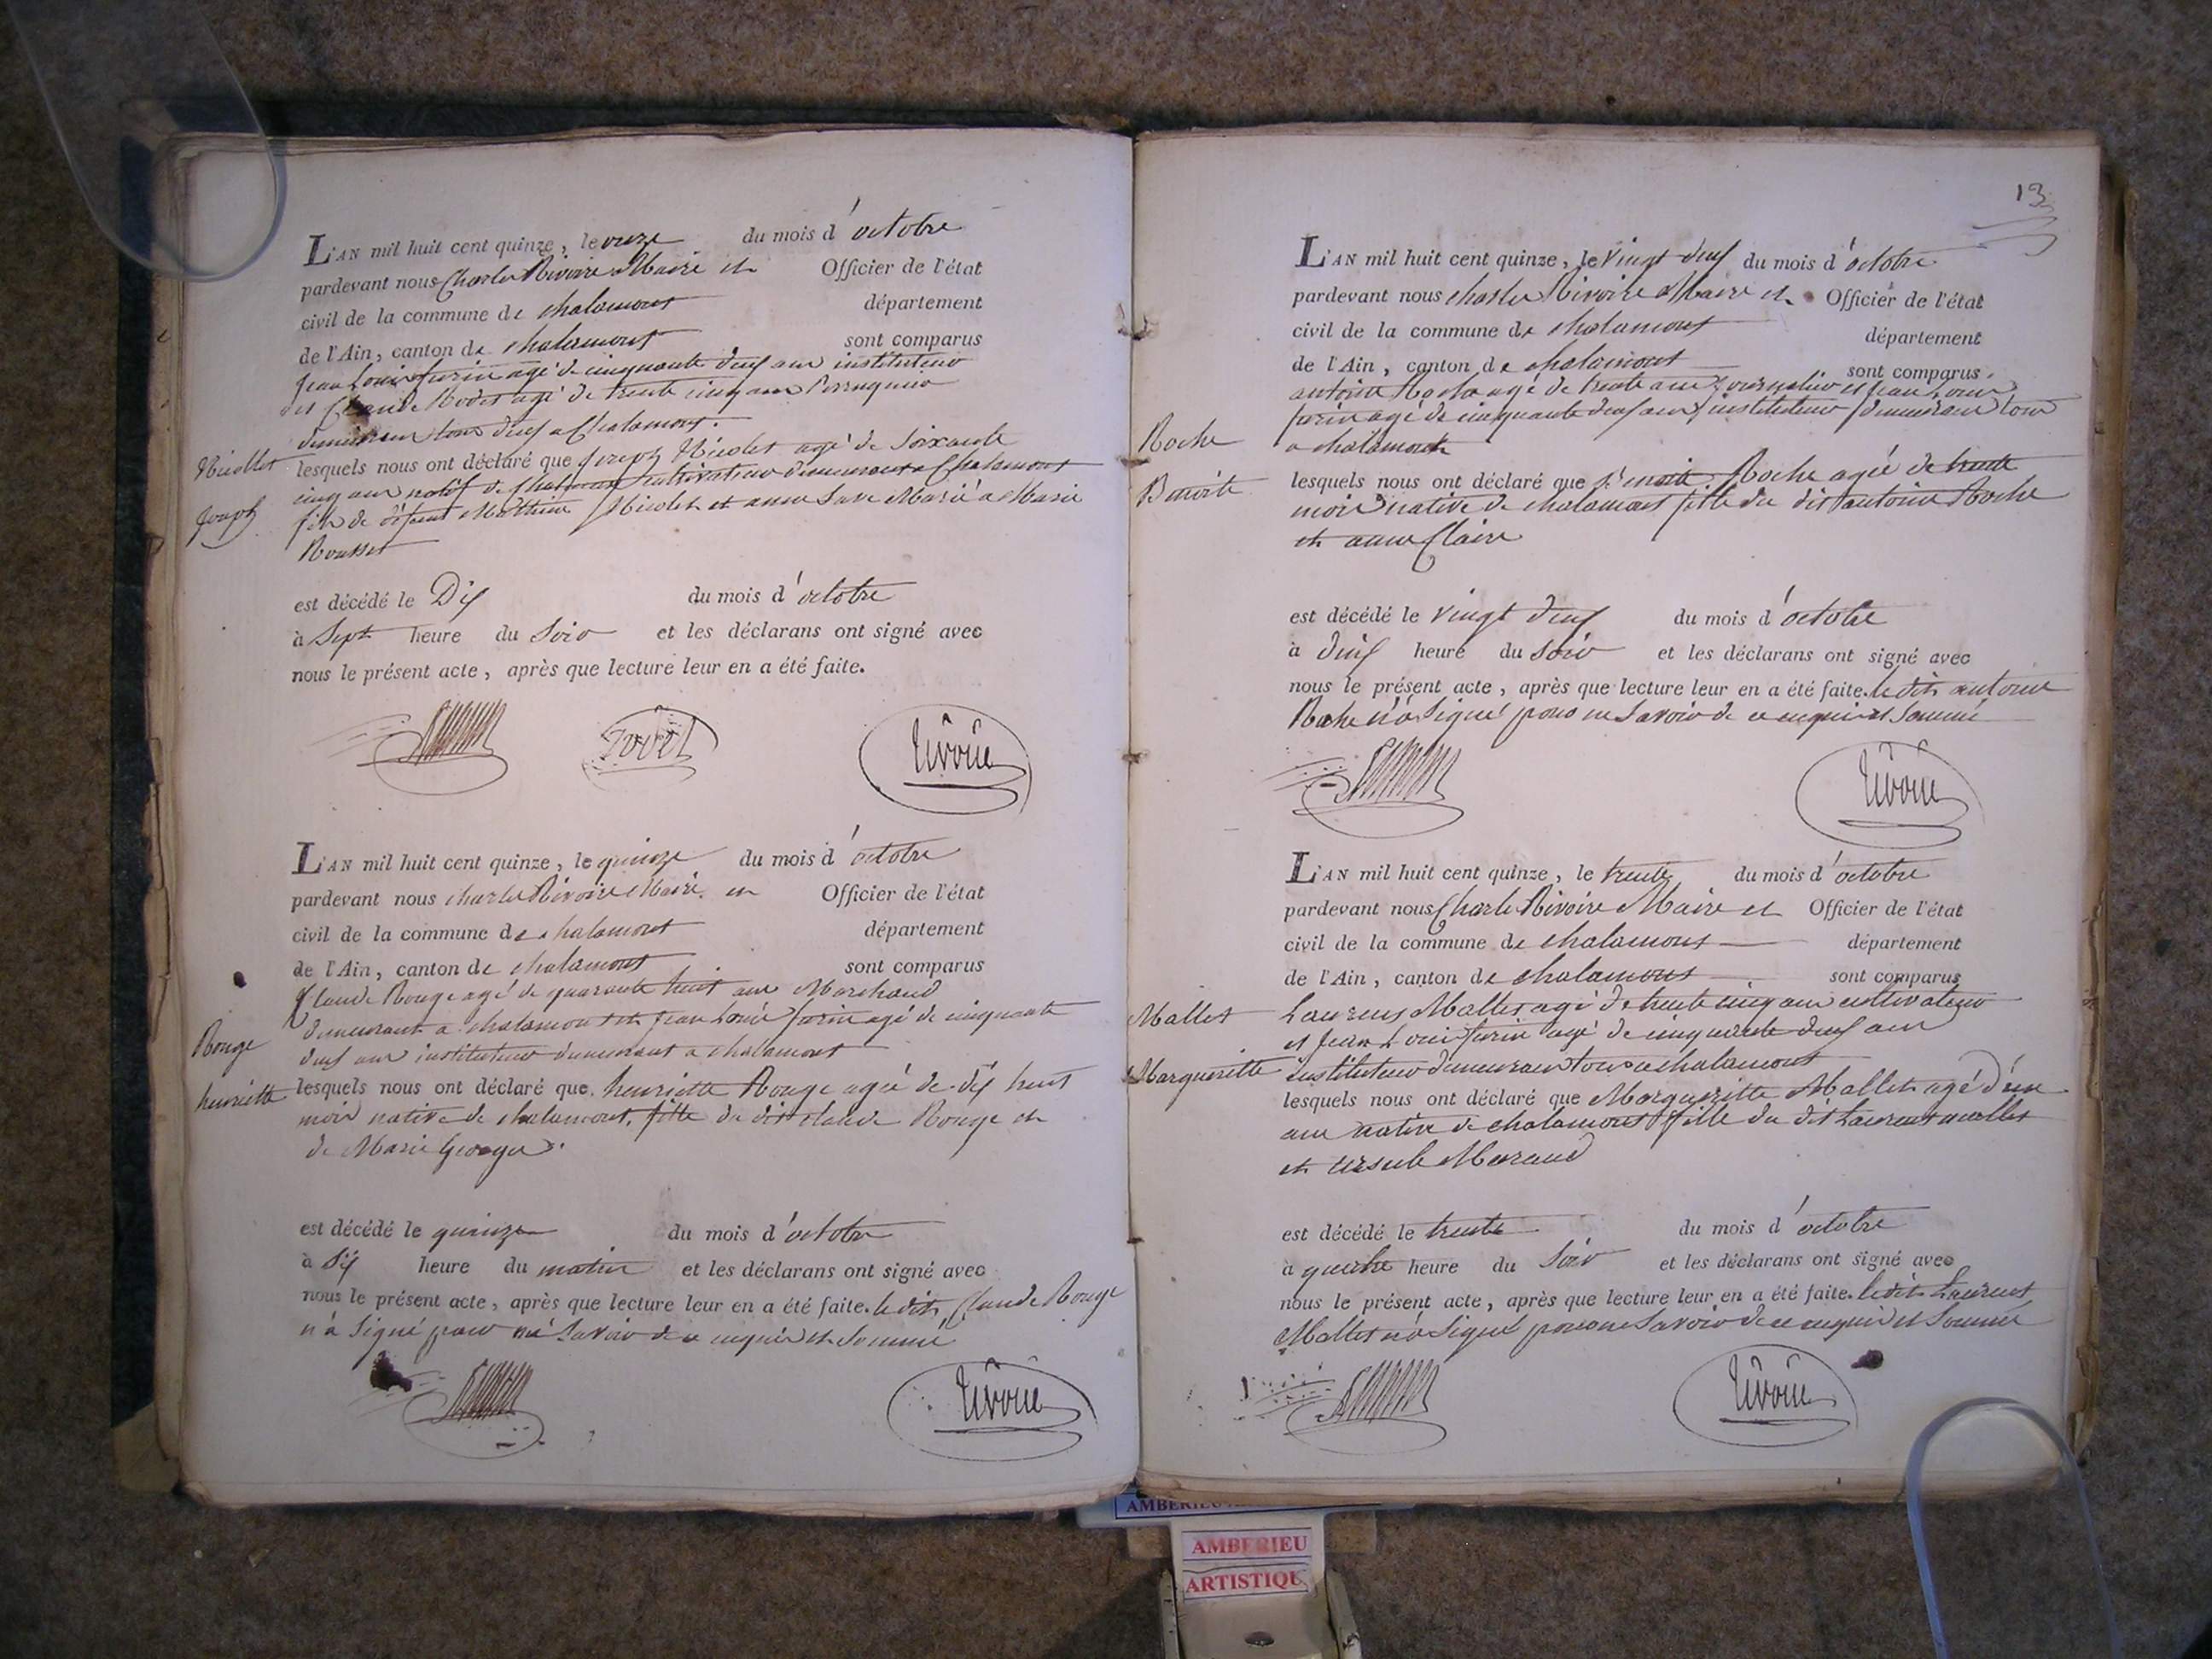 L'AN mil huit cent quinze, le onze du mois d'octobre
pardevant nous Charles Rivoire Maire et Officier de l'état
civil de la commune de chalamont département
de l'Ain, canton de chalamont sont comparus
Jean Louis agé de cinquante deux ans instituteur
et Claude Rodet agé de trente cinq ans Perruquier
demeurant tous deux a Chalamont.
Nicollet
Joseph
lesquels nous ont déclaré que Joseph Nicolet agé de soixante
cinq ans natif de Chalamont cultivateur demeurant a Chalamont
fils de défunt Mathieu Nicolet et anne Marié a Marie
Rousset
est décédé le Dix du mois d'octobre
à Sept heure du Soir et les déclarans ont signé avec
nous le présent acte, après que lecture leur en a été faite.
Rodet rivoire
L'AN mil huit cent quinze, le quinze du mois d'octobre
pardevant nous charles Rivoire Maire et Officier de l'état
civil de la commune de chalamont département
de l'Ain, canton de chalamont sont comparus
Claude Rouge agé de quarante huit ans Marchand
demeurant a chalamont et jean Louis agé de cinquante
deux ans instituteur demeurant a chalamont
Rouge
henriette
lesquels nous ont déclaré que henriette Rouge agée de dix huit
mois native de chalamont, fille du dit claude Rouge et
de Marie George
est décédé le quinze du mois d'octobre
à Six heure du matin et les déclarans ont signé avec
nous le présent acte, après que lecture leur en a été faite. le dit Claude Rouge
n'a Signé pour ne Savoir de ce enquis et Sommé
rivoire
13
L'AN mil huit cent quinze, le vingt deux du mois d'octobre
pardevant nous charles Rivoire Maire et Officier de l'état
civil de la commune de chalamont département
de l'Ain, canton de chalamont sont comparus
antoine Roche agé de trente ans journalier et jean Louis
agé de cinquante deux ans instituteur demeurant tous
a chalamont
Roche
Benoite
lesquels nous ont déclaré que Benoite Roche agée de trente
mois native de chalamont fille du dit antoine Roche
et anne Claire
est décédé le vingt deux du mois d'octobre
à deux heure du soir et les déclarans ont signé avec
nous le présent acte, après que lecture leur en a été faite. le dit antoine
Roche n'a Signé pour ne Savoir de ce enquis et Sommé
rivoire
L'AN mil huit cent quinze, le trente du mois d'octobre
pardevant nous Charles Rivoire Maire et Officier de l'état
civil de la commune de chalamont département
de l'Ain, canton de chalamont sont comparus
Laurent Mallet agé de trente cinq ans cultivateur
et Jean Louis agé de cinquante deux ans
instituteur demeurant tous a chalamont
Mallet
Margueritte
lesquels nous ont déclaré que Margueritte Mallet agé d'un
ans native de chalamont fille du dit Laurent mallet
et ursule
est décédé le trente du mois d'octobre
à quatre heure du Soir et les déclarans ont signé avec
nous le présent acte, après que lecture leur en a été faite. le dit Laurent
Mallet n'a Signé pour ne Savoir de ce enquis et Sommé
rivoire
AMBERIEU
AMBERIEU
ARTISTIQU